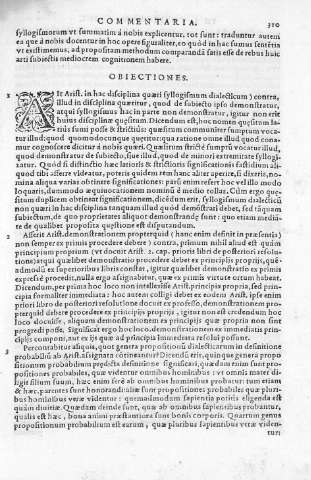 COMMENTARIA. 310
syllogismorum vt summatim à nobis explicentur. tot sunt: traduntur autem
ea quę à nobis docentur in hoc opere figuraliter, eo quòd in hac sumus sentētia
vt existimemus, ad propositam methodum comparandā satis esse de rebus huic
arti subiectis mediocrem cognitionem habere.
OBIECTIONES.
1 AIt Arist. in hac disciplina quæri syllogismum dialecticum) contra,
illud in disciplina quæritur, quod de subiecto ipso demonstratur,
atqui syllogismus hac in parte non demonstratur, igitur non erit
huius disciplinæ quęsitum. Dicendum est, hoc nomen quęsitum la-
tiùs sumi posse & strictiùs: quæsitum communiter sumptum voca-
tur illud: quod quomodocunque quęritur: qua ratione omne illud quod cona-
mur cognoscere dicitur à nobis quæri. Quæsitum strictè sumptū vocatur illud,
quod demonstratur de subiecto, siue illud, quod de minori extremitate syllogi-
zatur. Quòd si distinctio hæc latioris & strictioris significationis fastidium ali-
quod tibi afferre videatur, poteris quidem rem hanc aliter aperire, si dixeris, no-
mina aliqua varias obtinere significationes: pari enim refert hoc vel illo modo
loquaris, dummodo æquiuocationem nominū è medio tollas. Cùm ergo quę-
situm duplicem obtineat significationem, dicēdum erit, syllogismum dialecticū
non quæri in hac disciplina tanquam illud quòd demonstrari debet, sed tāquam
subiectum, de quo proprietates aliquot demonstrandę sunt: quo etiam modò i-
te de qualibet proposita quæstione est disputandum.
2 Asserit Arist. demonstrationem propterquid (hanc enim definit in præsentia)
non semper ex primis procedere debere) contra, primum nihil aliud est quàm
principium proprium (vt docuit Arist. 2. cap. prioris libri de posteriori resolu-
tione) atqui quælibet demonstratio procedere debet ex principijs proprijs, quē-
admodū ex superioribus libris constat, igitur quælibet demonstratio ex primis
expressè procedit, nulla ergo assignabitur, quæ ex primis virtute ortum habeat.
Dicendum, per prima hoc loco non intellexisse Arist. principia propria, sed prin-
cipia formaliter immediata: hoc autem colligi debet ex eodem Arist. ipse enim
priori libro de posteriori resolutione docuit ex professo, demonstrationem pro-
pterquid debere procedere ex principijs proprijs, igitur non est credendum hoc
loco docuisse, aliquam demonstrationem ex principijs quæ propria non sint
progredi posse. Significat ergo hoc loco demonstrationem ex immediatis prin-
cipijs componi, aut ex ijs quæ ad principia immediata resolui possunt.
3 Percontabitur aliquis, quot genera propositionū dialecticarum in definitione
probabiliū ab Arist. assignata cōtineantur? Dicendū erit, quinque genera propo
sitionum probabilium prædicta definitione significari, quædam enim sunt pro-
positiones probabiles, quæ videntur omnibus hominibus: vt omnis mater di-
ligit filium suum, hæc enim serè ab omnibus hominibus probatur: tum etiam
& hæc. parentes sunt honorandi: aliæ sunt propositiones probabiles quæ pluri-
bus hominibus veræ videntur: quemadmodum sapientia potiùs eligenda est
quàm diuitiæ. Quædam deinde sunt, quæ ab omnibus sapientibus probantur,
qualis est hæc, bona animi præstantiora sunt bonis corporis. Quartum genus
propositionum probabilium est earum, quæ pluribus sapientibus veræ viden-
tur: